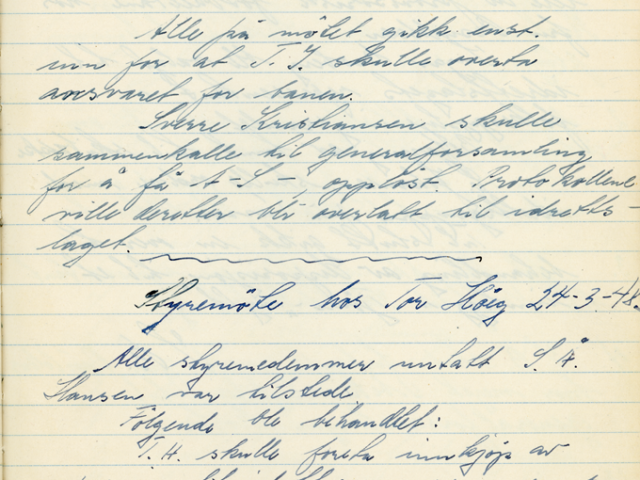 Alle på mötet gikk enst.
inn for at T. I. skulle overta
ansvaret for banen.
Sverre Kristiansen skulle
sammenkalle til generalforsamling
for å få A-S-, opplöst. Protokollene
ville deretter bli overlatt til idretts-
laget.
Styremöte hos Tor Höeg 24-3-48.
Alle styremedemmer untatt S. Å.
Hansen var tilstede
Fölgende ble behandlet:
T. H. skulle foreta innkjöp av